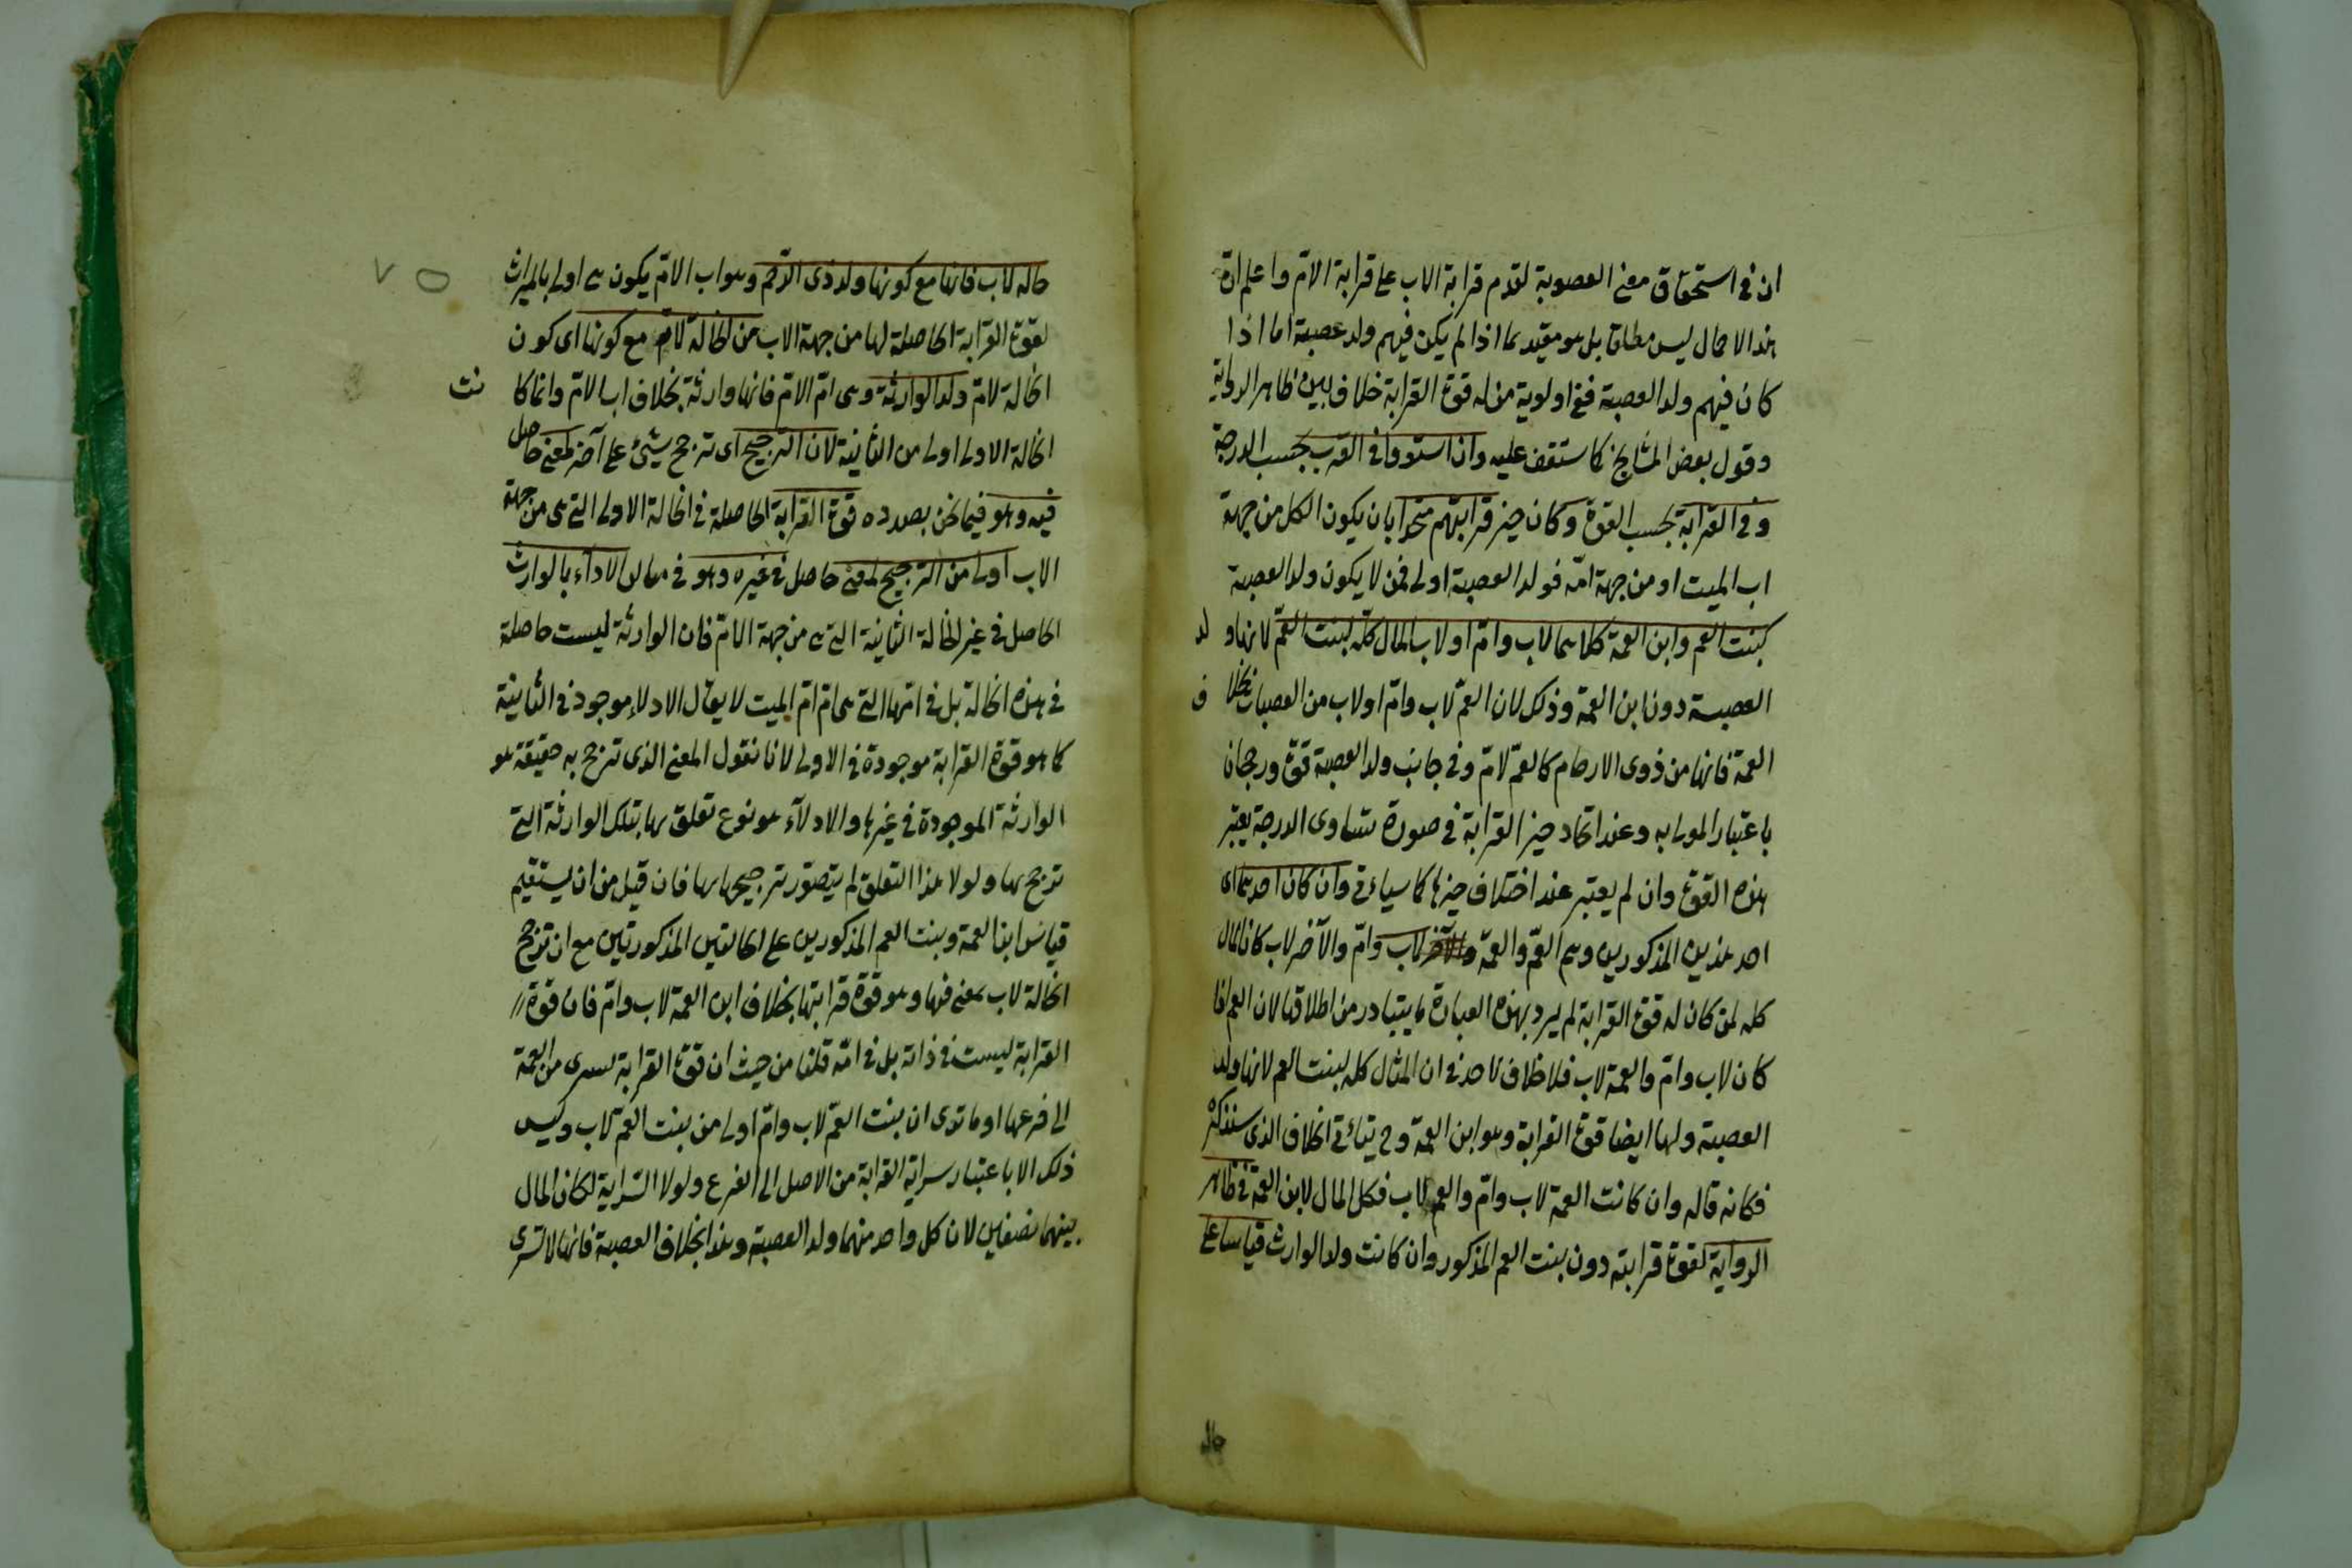 ان فى استحقاق معنى العصوبة لقدم قرابة الاب على قرابة الام واعلم ان
هذا الاجمال ليس مطلقا بل هو مقيد بما اذا لم يكن فيهم ولد عصبة اما اذا
كان فيهم ولد العصبة ففى اولوية من له قوة القرابة خلاف بين ظاهر الرواية
وقول بعض المشايخ كما ستقف عليه وان استووا فى القرب بحسب الدرجة
وفى القرابة بحسب القوة وكان حيز قرابتهم متحدا بان يكون الكل من جهة
اب الميت او من جهة امّه فولد العصبة اولى فمن لا يكون ولد العصبة
كبنت العم وابن العمة كلاهما لاب وامّ او لاب المال كلّه لبنت العمّ لانها ولد
العصبة دون ابن العمة وذلك لان العمّ لاب وامّ او لاب من العصبات بخلاف
العمة فانها من ذوى الارحام كالعمّ لامّ وفى جانب ولد العصبة قوة ورجحان
باعتبار المدلى به وعند اتحاد حيز القرابة فى صورة تساوى الدرجة يعتبر
هذه القوة وان لم يعتبر عند اختلاف حيزها كما سيأتى وان كان احدهما اى
احد هذين المذكورين وهم العمّ والعمّة لاب وامّ والآخر لاب كان المال
كله لمن كان له قوة القرابة لم يرد بهذه العبارة ما يتبادر من اطلاقها لان العم اذا
كان لاب وامّ والعمة لاب فلا خلاف لاحد فى ان المال كله لبنت العم لانها ولد
العصبة ولها ايضا قوة القرابة وهو ابن العمة وح يتأتى الخلاف الذى سنذكره
فكانه قال وان كانت العمة لاب وامّ والعم لاب فكل المال لابن العمة فى ظاهر
الرواية لقوة قرابته دون بنت العم المذكور وان كانت ولد الوارث قياسا على
خالة لاب فانها مع كونها ولد ذى الرّحم وهو اب الامّ يكون هى اولى بالميراث
لقوة القرابة الحاصلة لها من جهة الاب من الخالة لامّ مع كونها اى كون
الخالة لامّ ولد الوارثة وهى امّ الامّ فانها وارثة بخلاف اب الامّ وانما كانت
الخالة الاولى اولى من الثانية لان الترجيح اى ترجح شيئ على آخر لمعنى حاصل
فيه وهو فيما نحن بصدده قوة القرابة الحاصلة فى الخالة الاولى التى هى من جهة
الاب اولى من الترجيح لمعنى حاصل فى غيره وهو فى الادلاء بالوارث
الحاصل فى غير الخالة الثانية التى هى من جهة الامّ فان الوارثة ليست حاصلة
فى هذه الخالة بل فى امّها التى هى امّ امّ الميت لا يقال الادلاء موجود فى الثانية
كما هو قوة القرابة موجودة فى الاولى لانا نقول المعنى الذى ترجح به حقيقة هو
الوارثة الموجودة فى غيرها والادلاء هو نوع تعلق بها بتلك الوارثة التى
ترجح بها ولولا هذا التعلق لم يتصور ترجيحها بها فان قيل من ان يستقيم
قياس ابن العمة وبنت العم المذكورين على الخالتين المذكورتين مع ان ترجح
الخالة لاب بمعنى فيها وهو قوة قرابتها بخلاف ابن العمة لاب وامّ فان قوة
القرابة ليست فى ذاته بل فى امّه قلنا من حيث ان قوة القرابة تسرى من العمة
الى فرعها او ما ترى ان بنت العمّ لاب وامّ اولى من بنت العمّ لاب وليس
ذلك الا باعتبار سراية القرابة من الاصل الى الفرع ولولا السّراية لكان المال
بينهما نصفين لان كل واحد منهما ولد العصبة وهذا بخلاف العصبة فانها لا تسرى